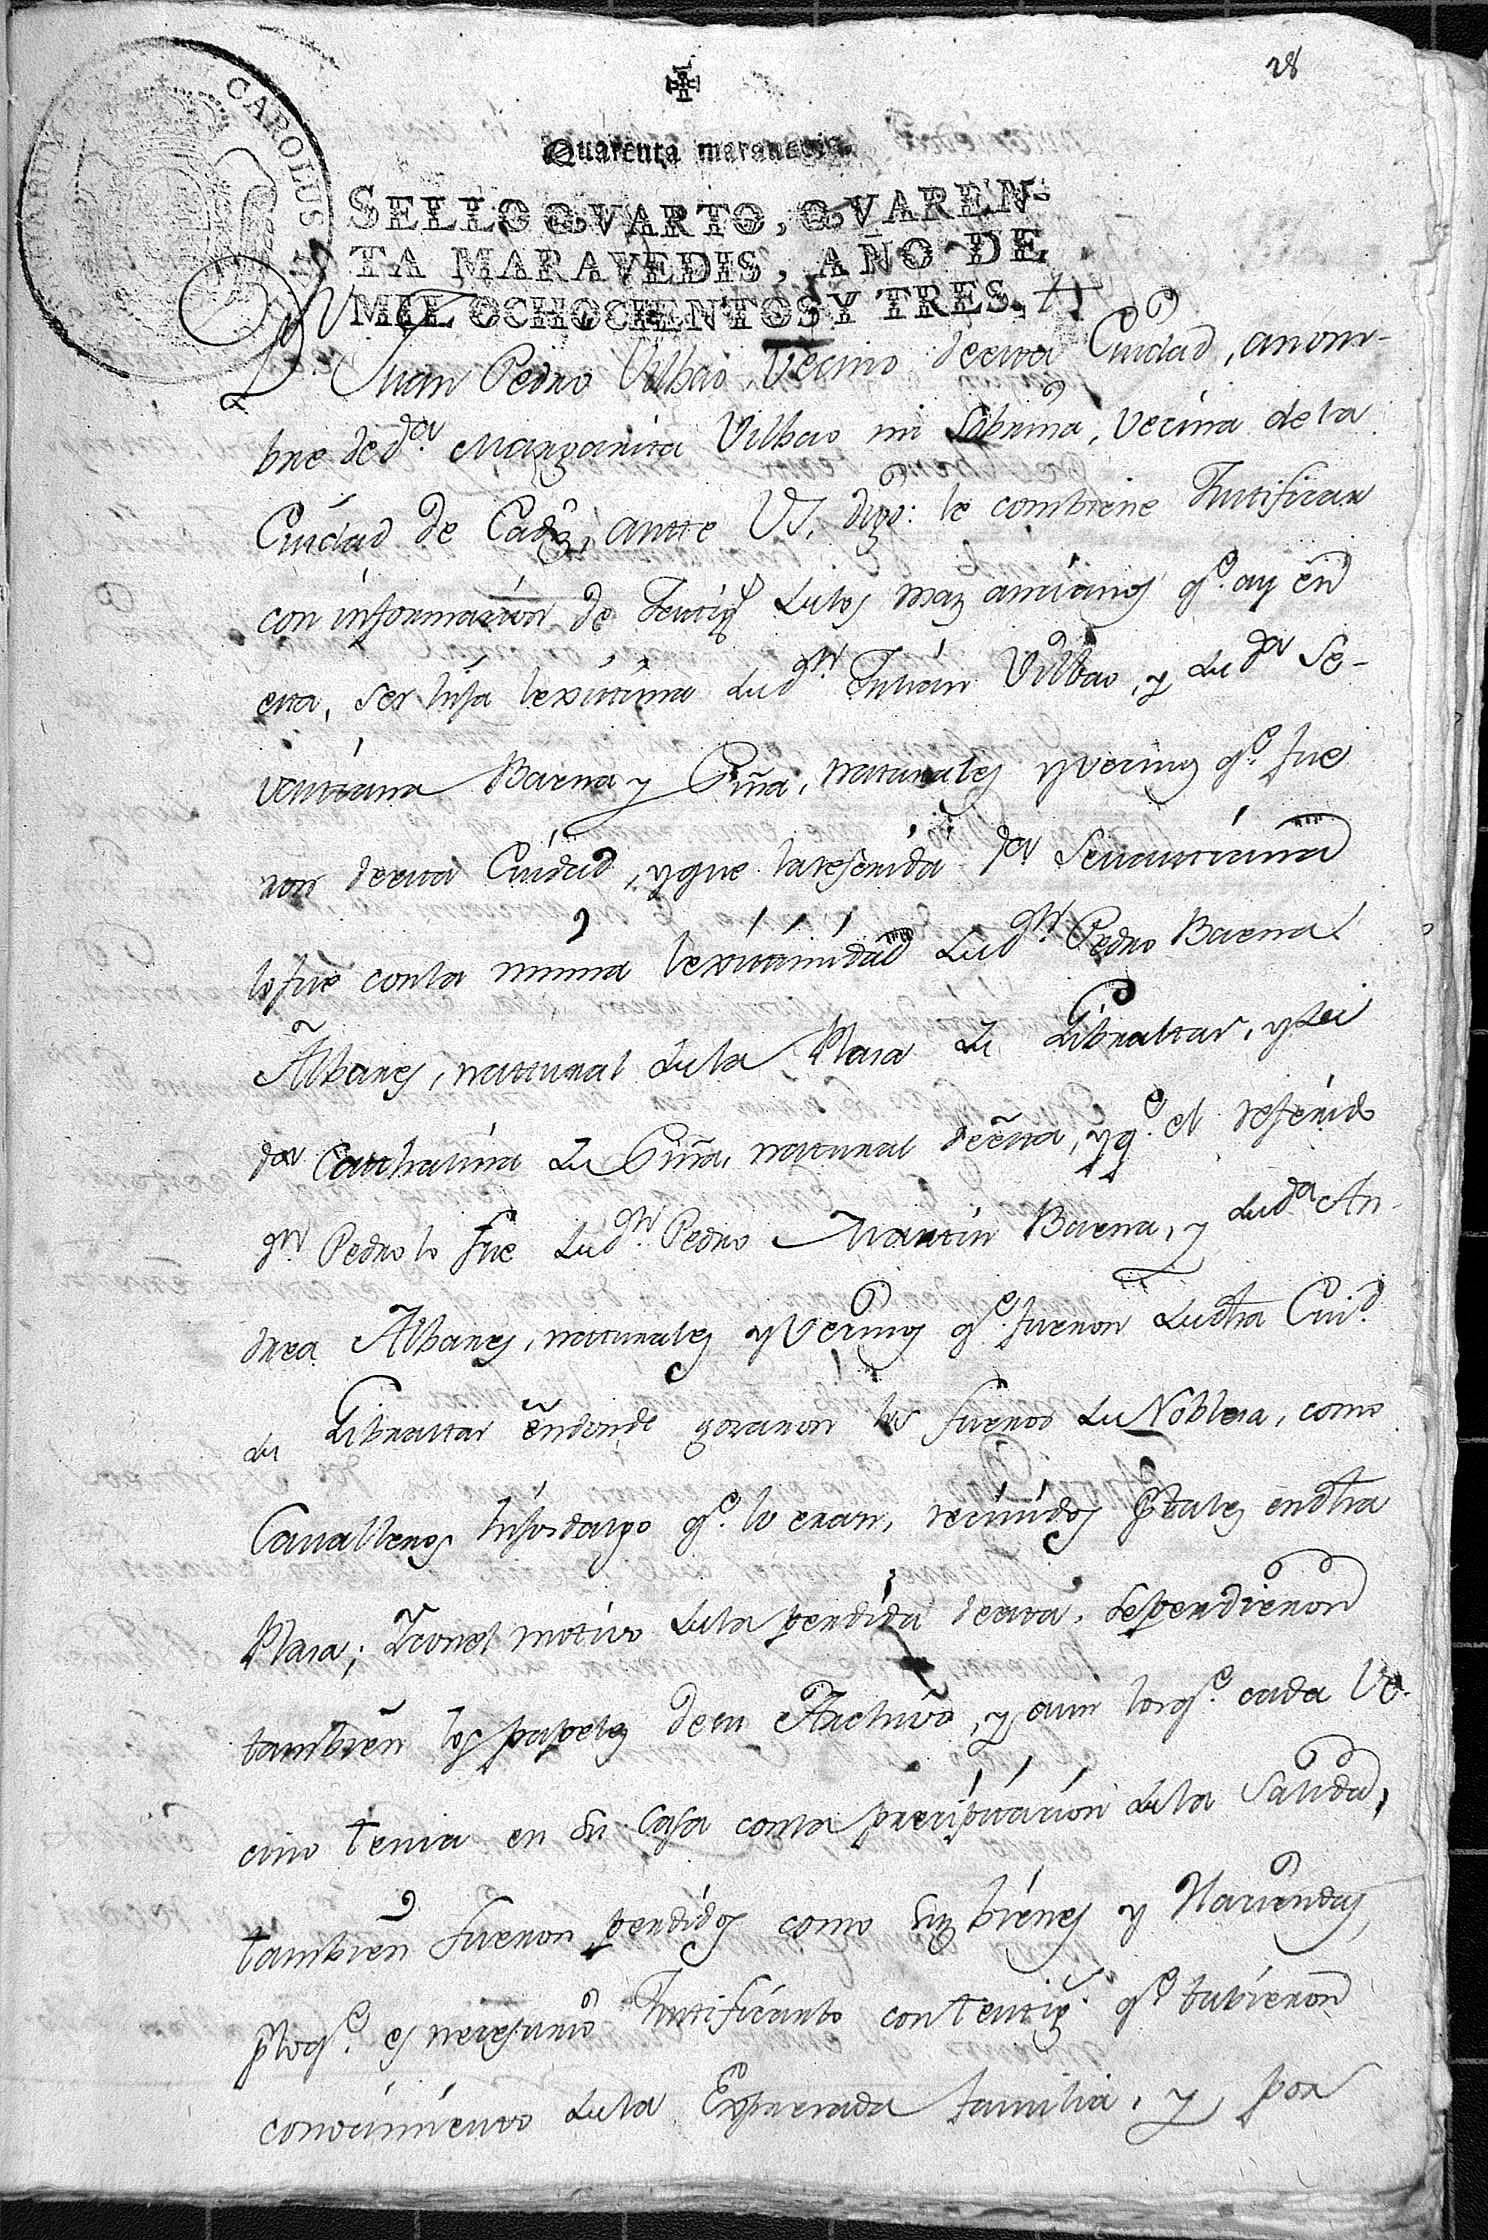 28
Quarenta maravedis.
SELLO QVARTO, QVAREN-
TA MARAVEDIS, AÑO DE
MIL OCHOCIENTOS Y TRES.
CAROLUS
Dn Juan Pedro Vilbao, Vecino deesta Ciudad, anom-
bre de da. Margarita Vilbao mi Sobrina, Vecina de la
Ciudad de Cadiz, antte VS. digo: le combiene Justificar
con informacion de Testigs de los mas ancianos qe. ay en
esta, ser hija lexitima de dn. Julian Vilbao, y de da Se-
vastiana Baena y Piña, naturales y vecinos qe. fue
ron deesta Ciudad, y que la referida da Sevasttiana
lo fue con la misma lexitimidad de dn. Pedro Baena
Albanes, nattural de la Plaza de Gibraltar, y de
da Catthalina de Piña, natural de esta, y qe. el referido
dn Pedro lo fue de dn. Pedro Martin Baena, y de da An-
drea Albanes, natturales y Vecinos qe. fueron de dha Ciud.
de Gibraltar en donde gozaron los fueros de Nobleza, como
Cavalleros hijosdalgo qe. lo eran, recividos por tales en dha
Plaza; Y con el motivo de la perdida de esta, se perdieron
tambien los papeles de su Archivo, y aun los qe. cada Ve-
cino tenia en su Casa con la precipitacion de la Salida,
tambien fueron perdidos como sus bienes y Haciendas,
por lo qe. es necesario Justificarlo con Testigs. qe tubieron
conocimiento de la Expresada familia, y por